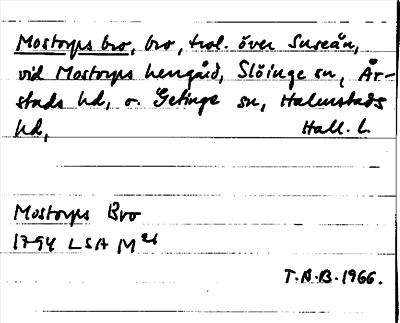 Mostorps bro, bro, trol. över Suseån,
vid Mostorps herrgård, Slöinge sn, År-
stads hd, o. Getinge sn, Halmstads
hd, Hall. l.
Mostorps Bro
1794 LSA M
T.A.B. 1966.